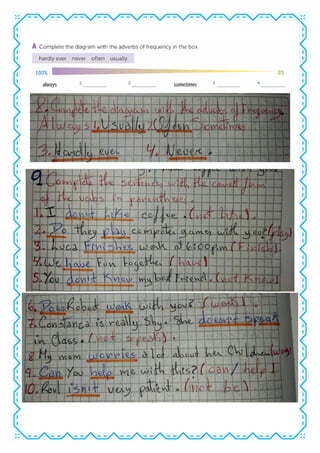 A Complete the diagram with the adverbs of frequency in the box.
hardly ever never often usually
100% 0%
always 1 sometimes 3 4
2
8. Complete the diagram with the adverbs of frequency.
Always 1. Usually 2. Often Sometimes
3. Hardly ever 4. Never.
9 Complete the sentences with the correct form
of the verbs in parentheses.
1. I don't like coffee. (not like).
2. Do they play computer games with you? (play)
3. Luca finishes work at 6:00pm (finish)
4. We have fun together. (have)
5. You don't know my best Friend. (not know)
6. Does Robert work with you? (work).
7. Constanza is really shy. She doesn't speak
in Class. (not speak).
8 My mom worries a lot about her Children
9. Can You help me with this? (can/help)
10. Raul isn't very patient. (not be)